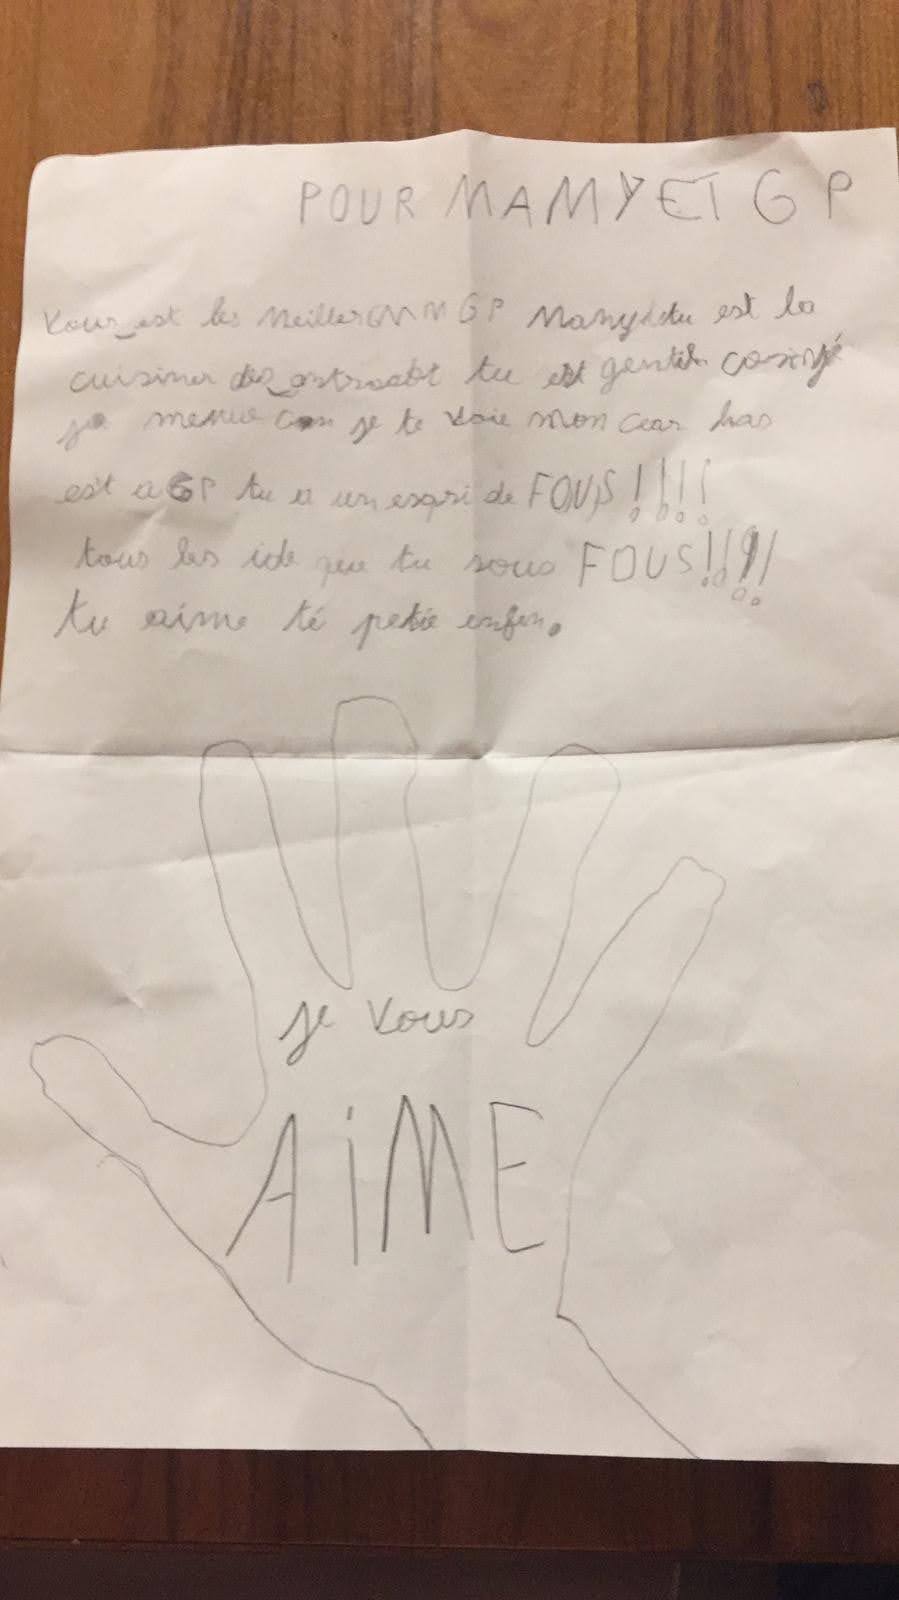 POUR MAMY ET GP
Vous est les meiller MM GP Mamy tu est la
cuisiner tu est gentil
je te voie mon cear bas
est a GP tu a un espri de FOUS!!!!
tous les ide que tu sous FOUS!!!!
tu aime té petie enfen.
je vous
AiME